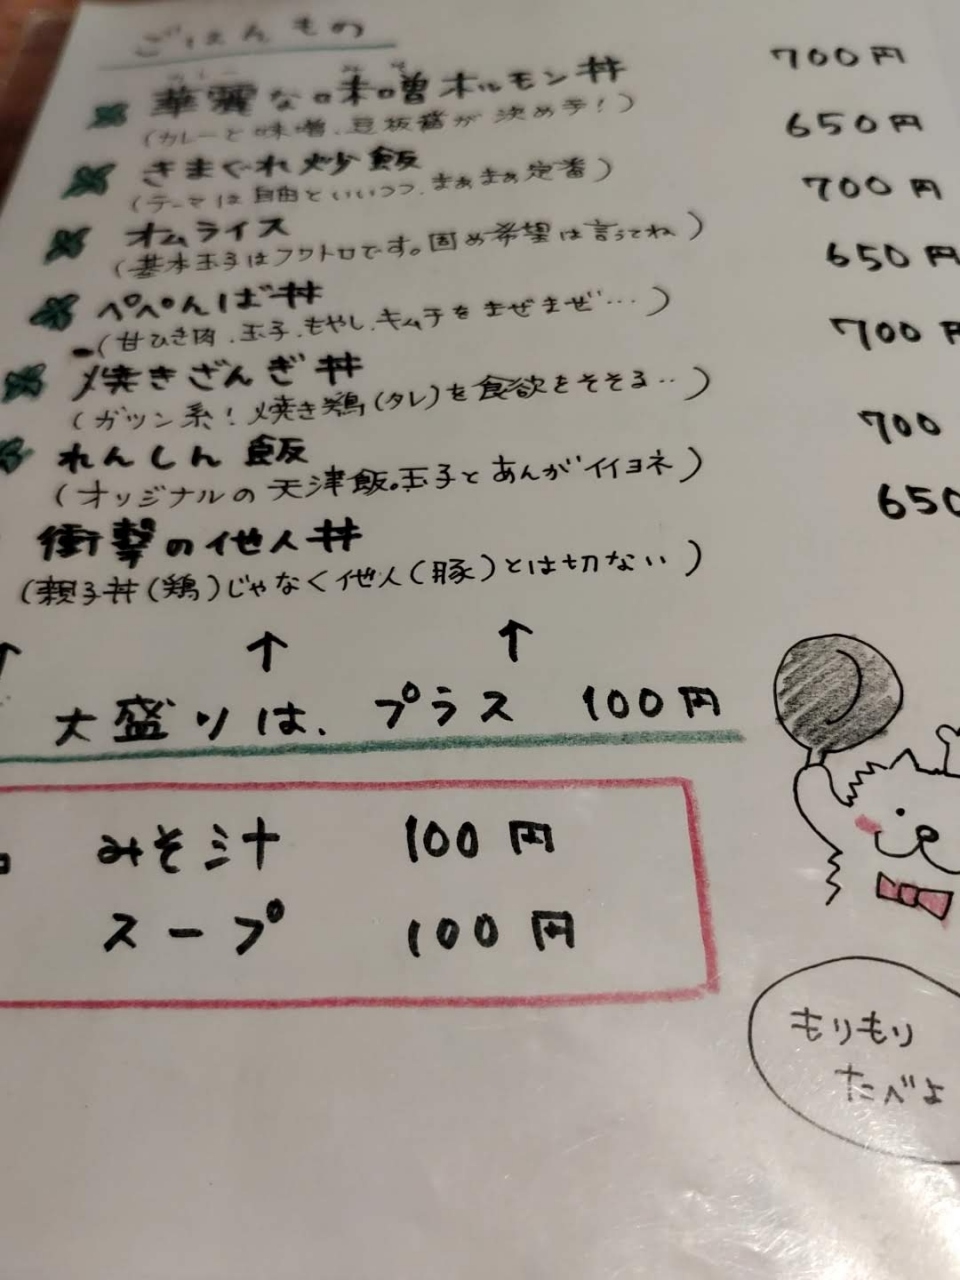 ごはんもの
華麗な味噌ホルモン丼 700円
(カレーと味噌、豆板醤が決め手!)
きまぐれ炒飯 650円
(テーマは自由といいつつ、まぁまぁ定番)
オムライス 700円
(基本玉子はフワトロです。固め希望は言ってね)
ぺぺんば丼 650円
(甘ひき肉、玉子、もやし、キムチをまぜまぜ…)
焼きざんぎ丼 700円
(ガツン系!焼き鶏(タレ)を食欲をそそる..)
れんしん飯 700
(オリジナルの天津飯。玉子とあんがイイヨネ)
衝撃の他人丼 650
(親子丼(鶏)じゃなく他人(豚)とは切ない)
↑ ↑ ↑
大盛りは、プラス 100円
みそ汁 100円
スープ 100円
もりもり
たべよ